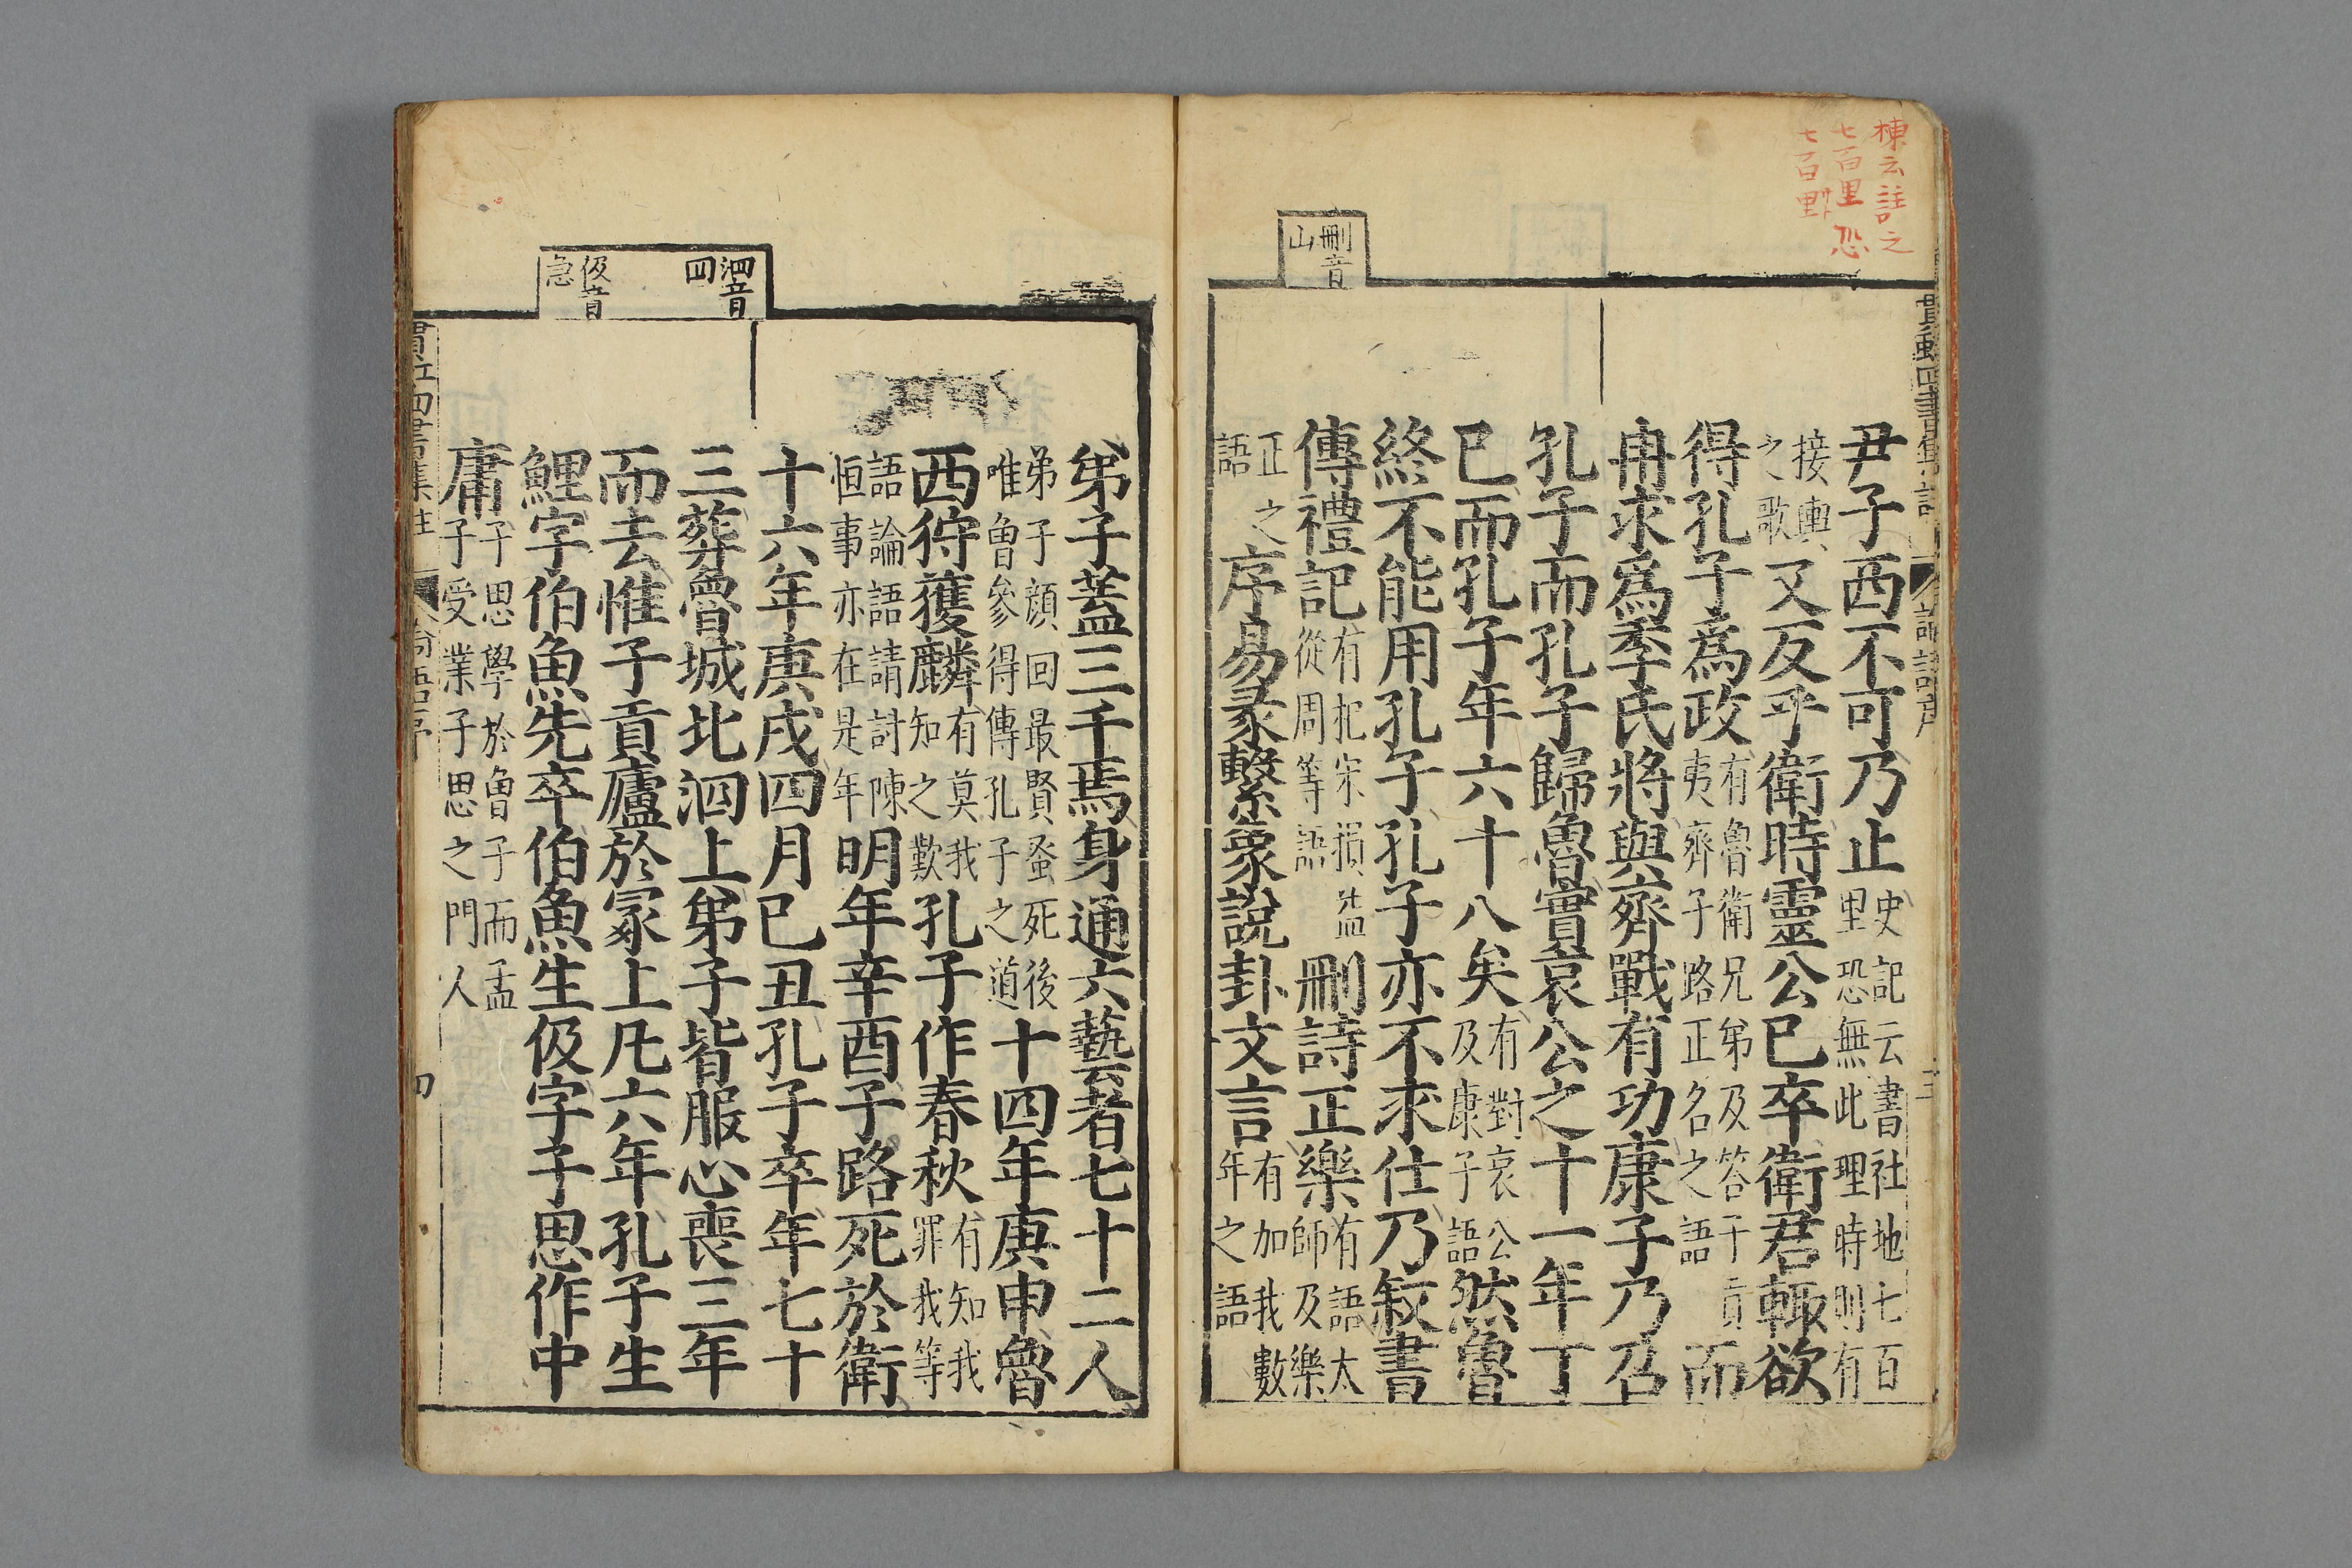 棟云註之
七百里恐
七百里卄
刪音
山
尹子西不可乃止史記云書社地七百
里恐無此理時則有
接輿
之歌又反乎衛時靈公已卒衛君輒欲
得孔子爲政有魯衛兄弟及答子貢
夷齊子路正名之語而
冉求爲季氏將與齊戰有功康子乃召
孔子而孔子歸魯實哀公之十一年丁
巳而孔子年六十八矣有對哀公
及康子語然魯
終不能用孔子孔子亦不求仕乃敍書
傳禮記有杞宋損益
從周等語刪詩正樂有語太
師及樂
正之
語序易彖繫象說卦文言有加我數
年之語
泗音
四
伋音
急
弟子蓋三千焉身通六藝者七十二人
弟子顔回最賢蚤死後
唯曾參得傳孔子之道十四年庚申魯
西狩獲麟有莫我
知之歎孔子作春秋有知我
罪我等
語論語請討陳
恒事亦在是年明年辛酉子路死於衛
十六年庚戌四月己丑孔子卒年七十
三葬魯城北泗上弟子皆服心喪三年
而去惟子貢廬於冢上凡六年孔子生
鯉字伯魚先卒伯魚生伋字子思作中
庸子思學於曾子而孟
子受業子思之門人
四書集註
論語序
四